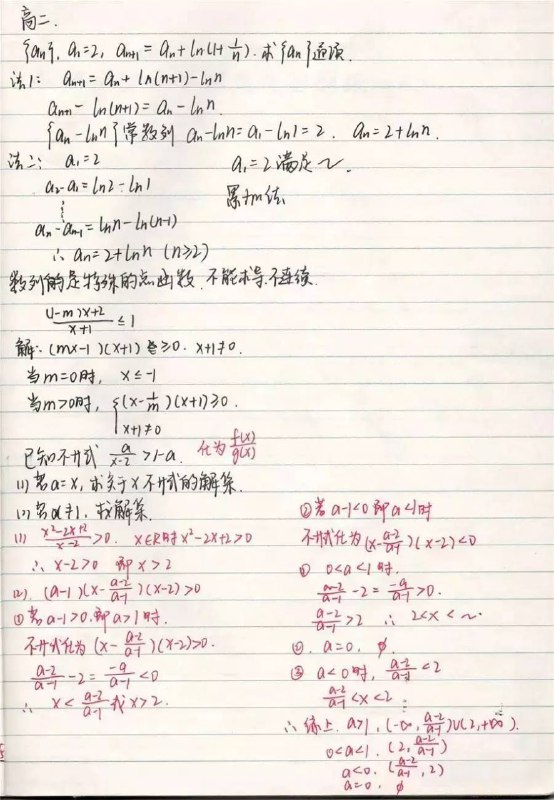 高二.
{an}, a₁=2, aₙ₊₁=aₙ+ln(1+1/n). 求{an}通项.
法1: aₙ₊₁=aₙ+ln(n+1)-lnn
aₙ₊₁-ln(n+1)=aₙ-lnn.
{aₙ-lnn}常数列 aₙ-lnn=a₁-ln1=2. aₙ=2+lnn.
法二: a₁=2
a₁=2满足~.
a₂-a₁=ln2-ln1
累加法
⋮
aₙ-aₙ₋₁=lnn-ln(n-1)
∴ aₙ=2+lnn (n≥2)
数列的是特殊的点函数, 不能求导, 不连续.
((1-m)x+2)/(x+1) ≤1
解: (mx-1)(x+1)≥0. x+1≠0.
当m=0时, x≤-1
当m>0时, {(x-1/m)(x+1)≥0.
x+1≠0
已知不等式 a/(x-2)>1-a. 化为 f(x)/g(x)
(1) 若a=x, 求关于x不等式的解集.
(2) 若a≠1, 求解集.
(1) (x²-2x+2)/(x-2)>0. x∈R时x²-2x+2>0
∴ x-2>0 即x>2
(2). (a-1)(x-(a-2)/(a-1))(x-2)>0
① 若a-1>0. 即a>1时.
不等式化为(x-(a-2)/(a-1))(x-2)>0.
(a-2)/(a-1)-2=(-a)/(a-1)<0
∴ x<(a-2)/(a-1)或x>2.
② 若a-1<0 即a<1时
不等式化为(x-(a-2)/(a-1))(x-2)<0
① 0<a<1时.
(a-2)/(a-1)-2=(-a)/(a-1)>0.
(a-2)/(a-1)>2 ∴ 2<x<~
②. a=0, ∅.
③ a<0时, (a-2)/(a-1)<2
(a-2)/(a-1)<x<2
∴ 综上. a>1, (-∞, (a-2)/(a-1))∪(2,+∞).
0<a<1. (2, (a-2)/(a-1))
a<0. ((a-2)/(a-1), 2)
a=0, ∅